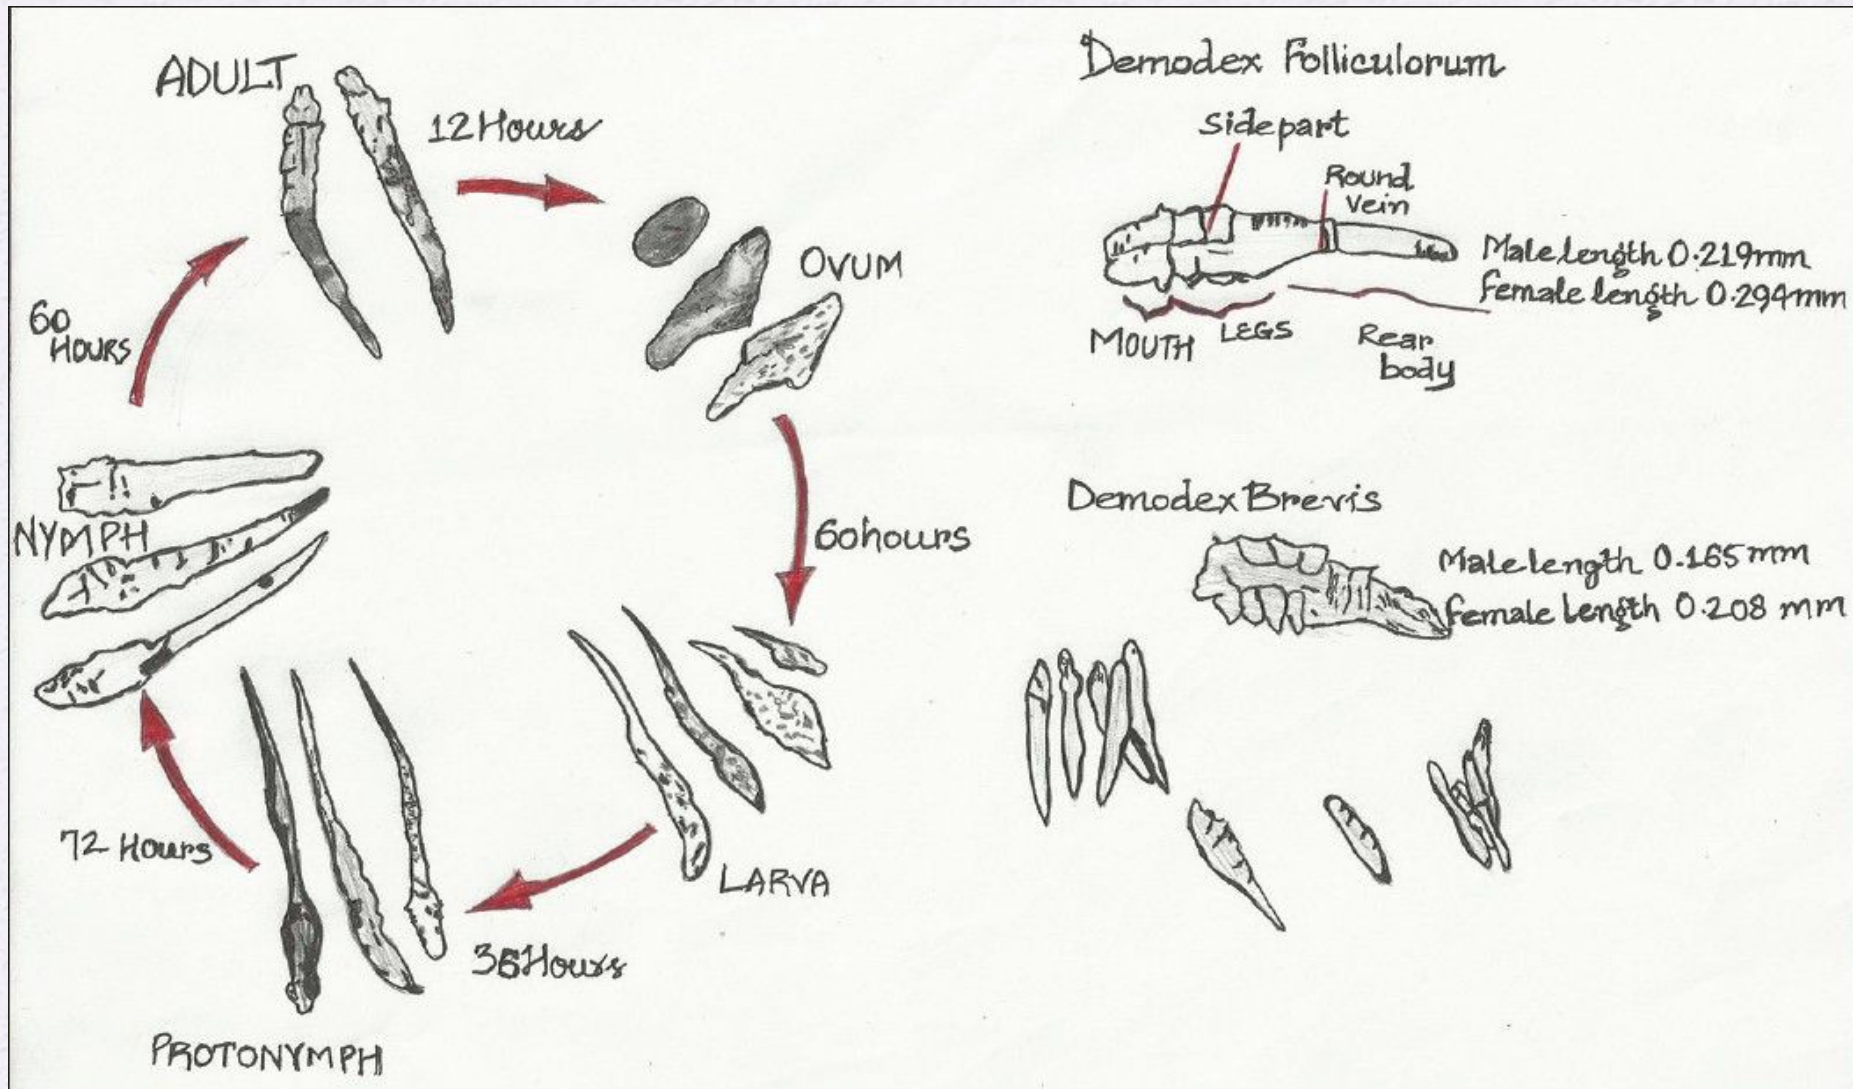 ADULT
12 Hours
OVUM
60 hours
LARVA
36 Hours
PROTONYMPH
72 Hours
NYMPH
60
HOURS
Demodex Folliculorum
Side part
Round
Vein
Male length 0.219mm
Female length 0.294mm
MOUTH
LEGS
Rear
body
Demodex Brevis
Male length 0.165 mm
Female length 0.208 mm